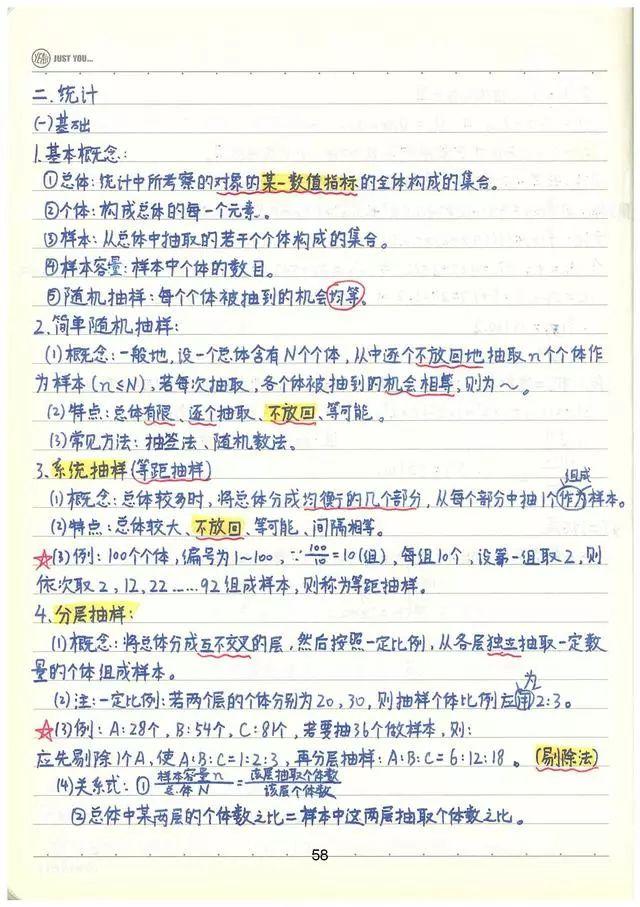 YEAH JUST YOU...
二. 统计
(一)基础
1.基本概念:
①总体:统计中所考察的对象的某一数值指标的全体构成的集合。
②个体:构成总体的每一个元素。
③样本:从总体中抽取的若干个个体构成的集合。
④样本容量:样本中个体的数目。
⑤随机抽样:每个个体被抽到的机会均等。
2.简单随机抽样:
(1)概念:一般地,设一个总体含有N个个体,从中逐个不放回地抽取n个个体作
为样本(n≤N),若每次抽取,各个体被抽到的机会相等,则为~。
(2)特点:总体有限、逐个抽取、不放回、等可能。
(3)常见方法:抽签法、随机数法。
3.系统抽样(等距抽样)
组成
(1)概念:总体较多时,将总体分成均衡的几个部分,从每个部分中抽1个作为样本。
(2)特点:总体较大、不放回、等可能、间隔相等。
☆(3)例:100个个体,编号为1~100,∵100/10=10(组),每组10个,设第一组取2,则
依次取2,12,22......92组成样本,则称为等距抽样。
4.分层抽样:
(1)概念:将总体分成互不交叉的层,然后按照一定比例,从各层独立抽取一定数
量的个体组成样本。
为
(2)注:一定比例:若两个层的个体分别为20,30,则抽样个体比例应用2:3。
☆(3)例:A:28个,B:54个,C:81个,若要抽36个做样本,则:
应先剔除1个A,使A:B:C=1:2:3,再分层抽样:A:B:C=6:12:18。(剔除法)
(4)关系式:①样本容量n/总体N=该层抽取个体数/该层个体数
②总体中某两层的个体数之比=样本中这两层抽取个体数之比。
58